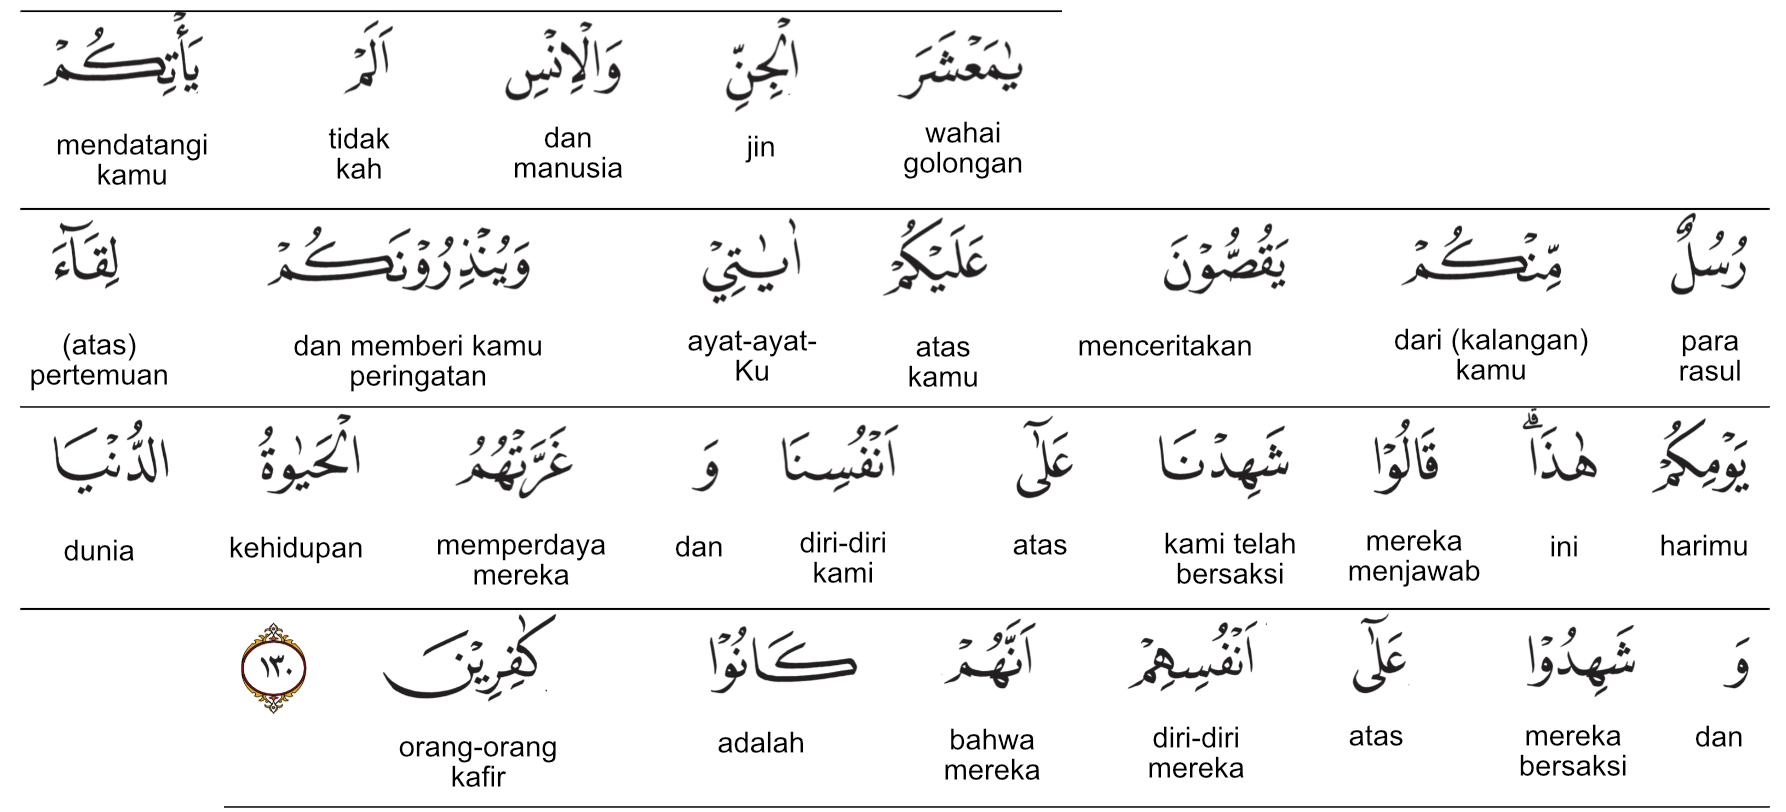 يٰمَعْشَرَ الْجِنِّ وَالْاِنْسِ اَلَمْ يَأْتِكُمْ
wahai golongan jin dan manusia tidak kah mendatangi kamu
رُسُلٌ مِّنْكُمْ يَقُصُّوْنَ عَلَيْكُمْ اٰيٰتِيْ وَيُنْذِرُوْنَكُمْ لِقَاۤءَ
para rasul dari (kalangan) kamu menceritakan atas kamu ayat-ayat-Ku dan memberi kamu peringatan (atas) pertemuan
يَوْمِكُمْ هٰذَاۗ قَالُوْا شَهِدْنَا عَلٰٓى اَنْفُسِنَا وَ غَرَّتْهُمُ الْحَيٰوةُ الدُّنْيَا
harimu ini mereka menjawab kami telah bersaksi atas diri-diri kami dan memperdaya mereka kehidupan dunia
وَ شَهِدُوْا عَلٰٓى اَنْفُسِهِمْ اَنَّهُمْ كَانُوْا كٰفِرِيْنَ ١٣٠
dan mereka bersaksi atas diri-diri mereka bahwa mereka adalah orang-orang kafir